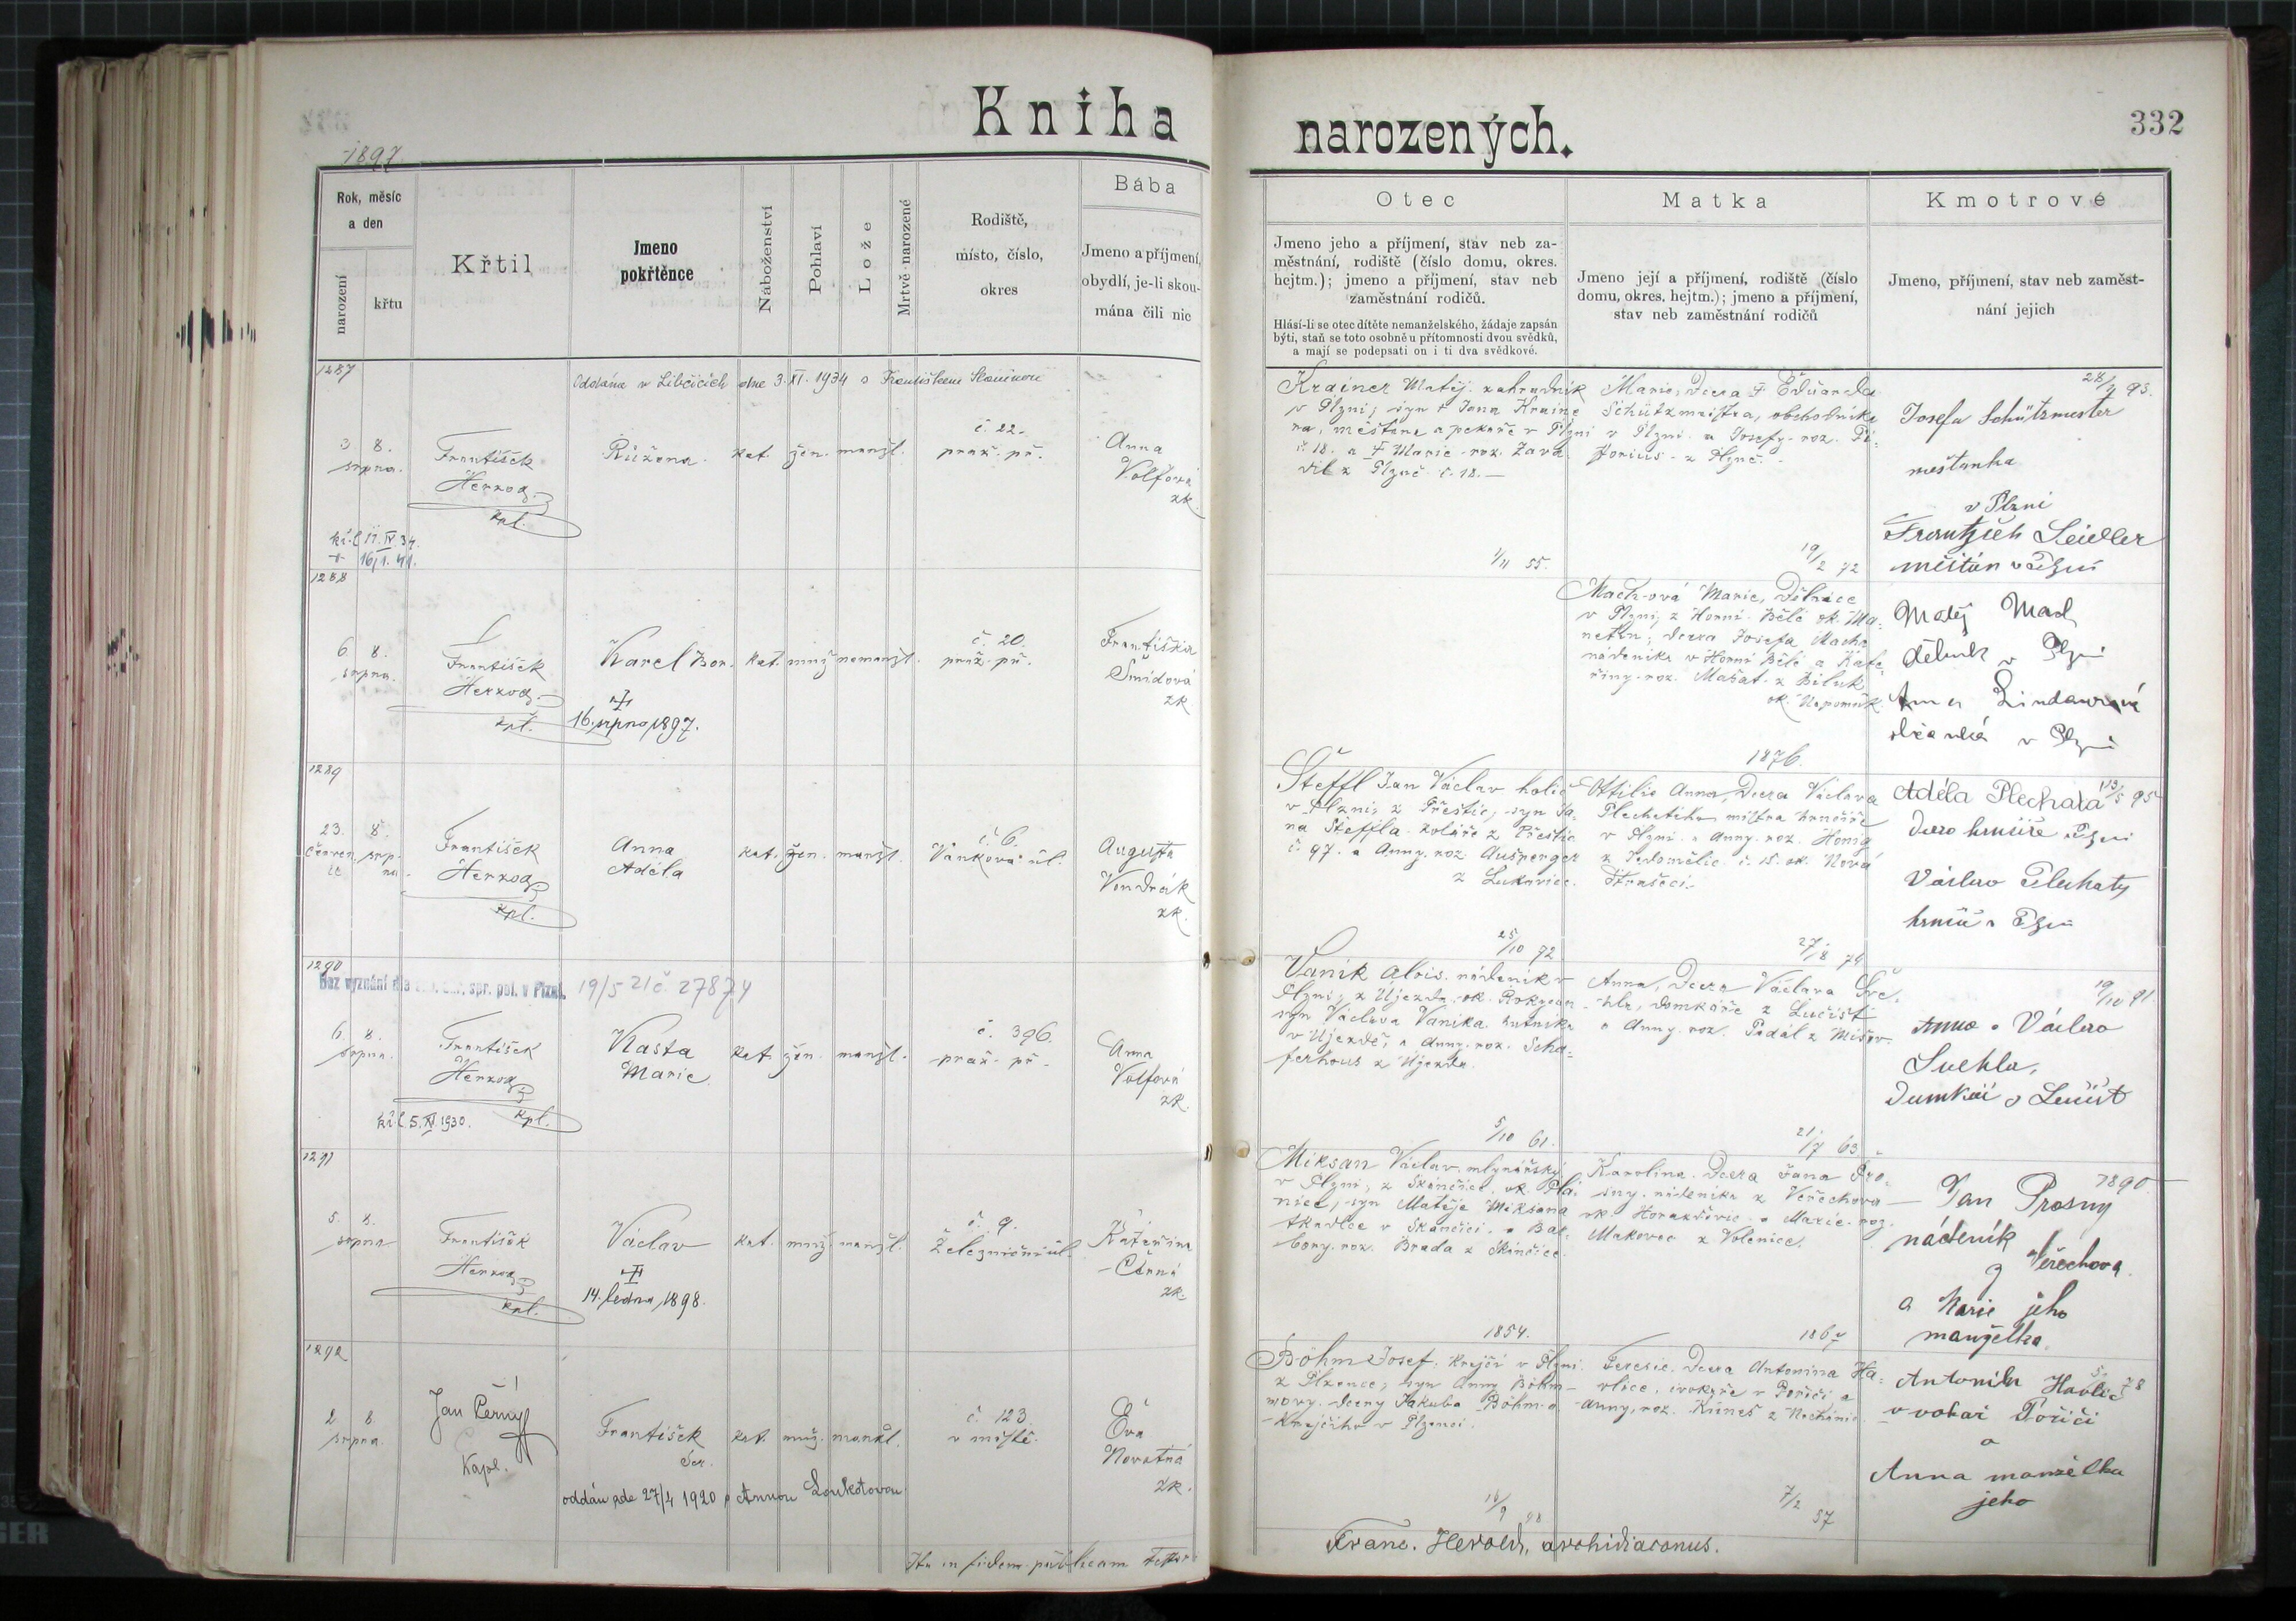 Kniha
narozených.
332
1897
Rok, měsíc
a den
narození
křtu
Křtil
Jmeno
pokřtěnce
Náboženství
Pohlaví
Lože
Mrtvě narozené
Rodiště,
místo, číslo,
okres
Bába
Jmeno a příjmení,
obydlí, je-li skou-
mána čili nic
Otec
Jmeno jeho a příjmení, stav neb za-
městnání, rodiště (číslo domu, okres.
hejtm.); jmeno a příjmení, stav neb
zaměstnání rodičů.
Hlásí-li se otec dítěte nemanželského, žádaje zapsán
býti, staň se toto osobně u přítomnosti dvou svědků,
a mají se podepsati on i ti dva svědkové.
Matka
Jmeno její a příjmení, rodiště (číslo
domu, okres. hejtm.); jmeno a příjmení,
stav neb zaměstnání rodičů
Kmotrové
Jmeno, příjmení, stav neb zaměst-
nání jejich
1287
Oddána v Libčicích dne 3. XI. 1934 s Františkem
3 8.
srpna.
František
Herzog
kpl.
Růžena.
kat. žen. manžl.
č. 22.
praž. př.
Anna
Volfová
zk.
16/1. 41.
Krainer Matěj. zahradník
v Plzni; syn † Jana Kraine
ra, měšťana a pekaře v Plzni
č. 18. a † Marie roz. Zava
dil z Plzně č. 18.
1/11 55.
Marie, dcera † Eduarda
Schützmeistra, obchodníka
v Plzni a Josefy roz. Pi-
storius z Plzně.
19/2 72
Josefa Schützmeister
měšťanka
v Plzni
František Seidler
měšťan v Plzni
1288
6 8.
srpna.
František
Herzog
kpl.
Karel Bor.
16. srpna 1897.
kat. muž. nemanžl.
č. 20.
praž. př.
Františka
Šmídová
zk.
Machová Marie, dělnice
v Plzni, z Horní Bělé ok. Ma-
netín; dcera Josefa Macha
nádeníka v Horní Bělé a Kate
řiny roz. Mašat z
1876.
Matěj Mach
dělník v Plzni
v Plzni
1289
23. 8.
červen srp-
ce na.
František
Herzog
kpl.
Anna
Adéla
kat. žen. manžl.
č. 6.
Vaňkova ul.
Augusta
Vondrák
zk.
Šteffl Jan Václav holič
v Plzni, z Přeštic, syn Ja-
na Šteffla koláře z Přeštic
č. 97. a Anny roz. Aušperger
z Lukavice.
25/10 72
Ottilie Anna, dcera Václava
Plechatého mistra hrnčíře
v Plzni a Anny roz. Honig
z č. 15. ok. Nové
Strašecí.
27/8 74
Adéla Plechatá
dcera hrnčíře v Plzni
Václav Plechatý
hrnčíř v Plzni
1290
Bez vyznání dle spr. pol. v Plzni. 19/5 21 č. 27874
6. 8.
srpna.
František
Herzog
kpl.
5. XI. 1930.
Vlasta
Marie
kat. žen. manžl.
č. 396.
praž. př.
Anna
Volfová
zk.
Vaník Alois. nádeník v
Plzni, z Újezda, ok. Rokycan
syn Václava Vaníka hutníka
v Újezdě, a Anny roz. Scha-
ferhous z Újezda.
5/10 61.
Anna, dcera Václava Šve-
hla, domkáře z Lučišť
a Anny roz. Padál z
21/7 63
Anna a Václav
Švehla,
1291
5. 8.
srpna
František
Herzog
kpl.
Václav
14. ledna 1898.
kat. muž. manžl.
č. 9.
Železniční ul.
Kateřina
Černá
zk.
Miksan Václav. mlynářský
v Plzni, z Skánčice, ok. Pla-
nice, syn Matěje Miksana
tkadlce v Skančici a Bar-
bory. roz. Brada z Skančice.
1854.
Karolina. dcera Jana Pro-
sny. nádeníka z Veřechova
ok. Horažďovic a Marie roz.
Makovec z Volenice.
1867
1890
Jan Prosny
nádeník
z Veřechova
a Marie jeho
manželka.
1292
2 8.
srpna.
Jan Černý
Kapl.
František
Ser.
kat. muž. manžl.
č. 123.
v městě.
Eva
Novotná
zk.
oddán zde 27/4 1920 s Annou Loukotovou
Böhm Josef. krejčí v Plzni
z Plzence; syn Anny Böhm-
ovy dcery Jakuba Böhma
krejčího v Plzenci.
Terezie. dcera Antonína Ha-
vlice. cvokaře v Poříčí a
Anny, roz. Kůneš z
7/2 57
Antonín Havlic
cvokař Poříčí
a
Anna manželka
jeho
Ita in fidem publicam testor
Franc. Herold, archidiaconus.